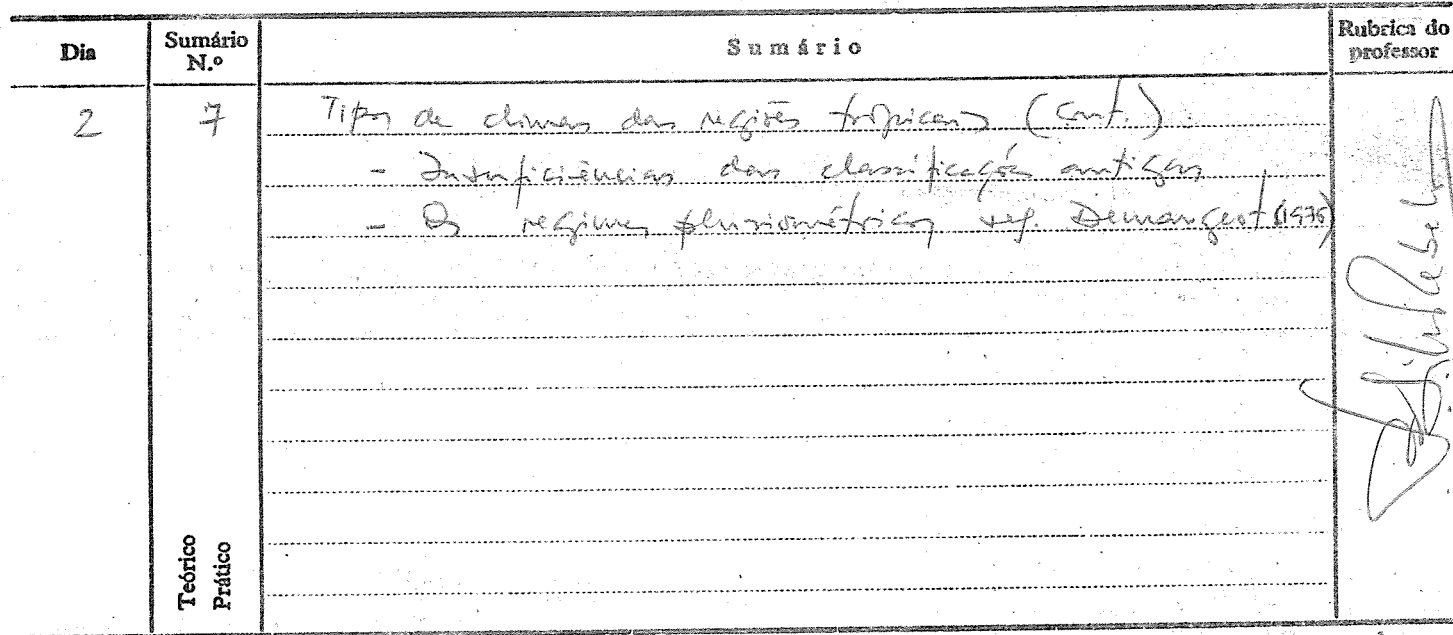 Dia
Sumário N.º
Sumário
Rubrica do professor
2
7
Tipos de climas das regiões tropicais (cont.)
- Insuficiências das classificações antigas
- Os regimes pluviométricos seg. Demangeot (1976)
Teórico
Prático